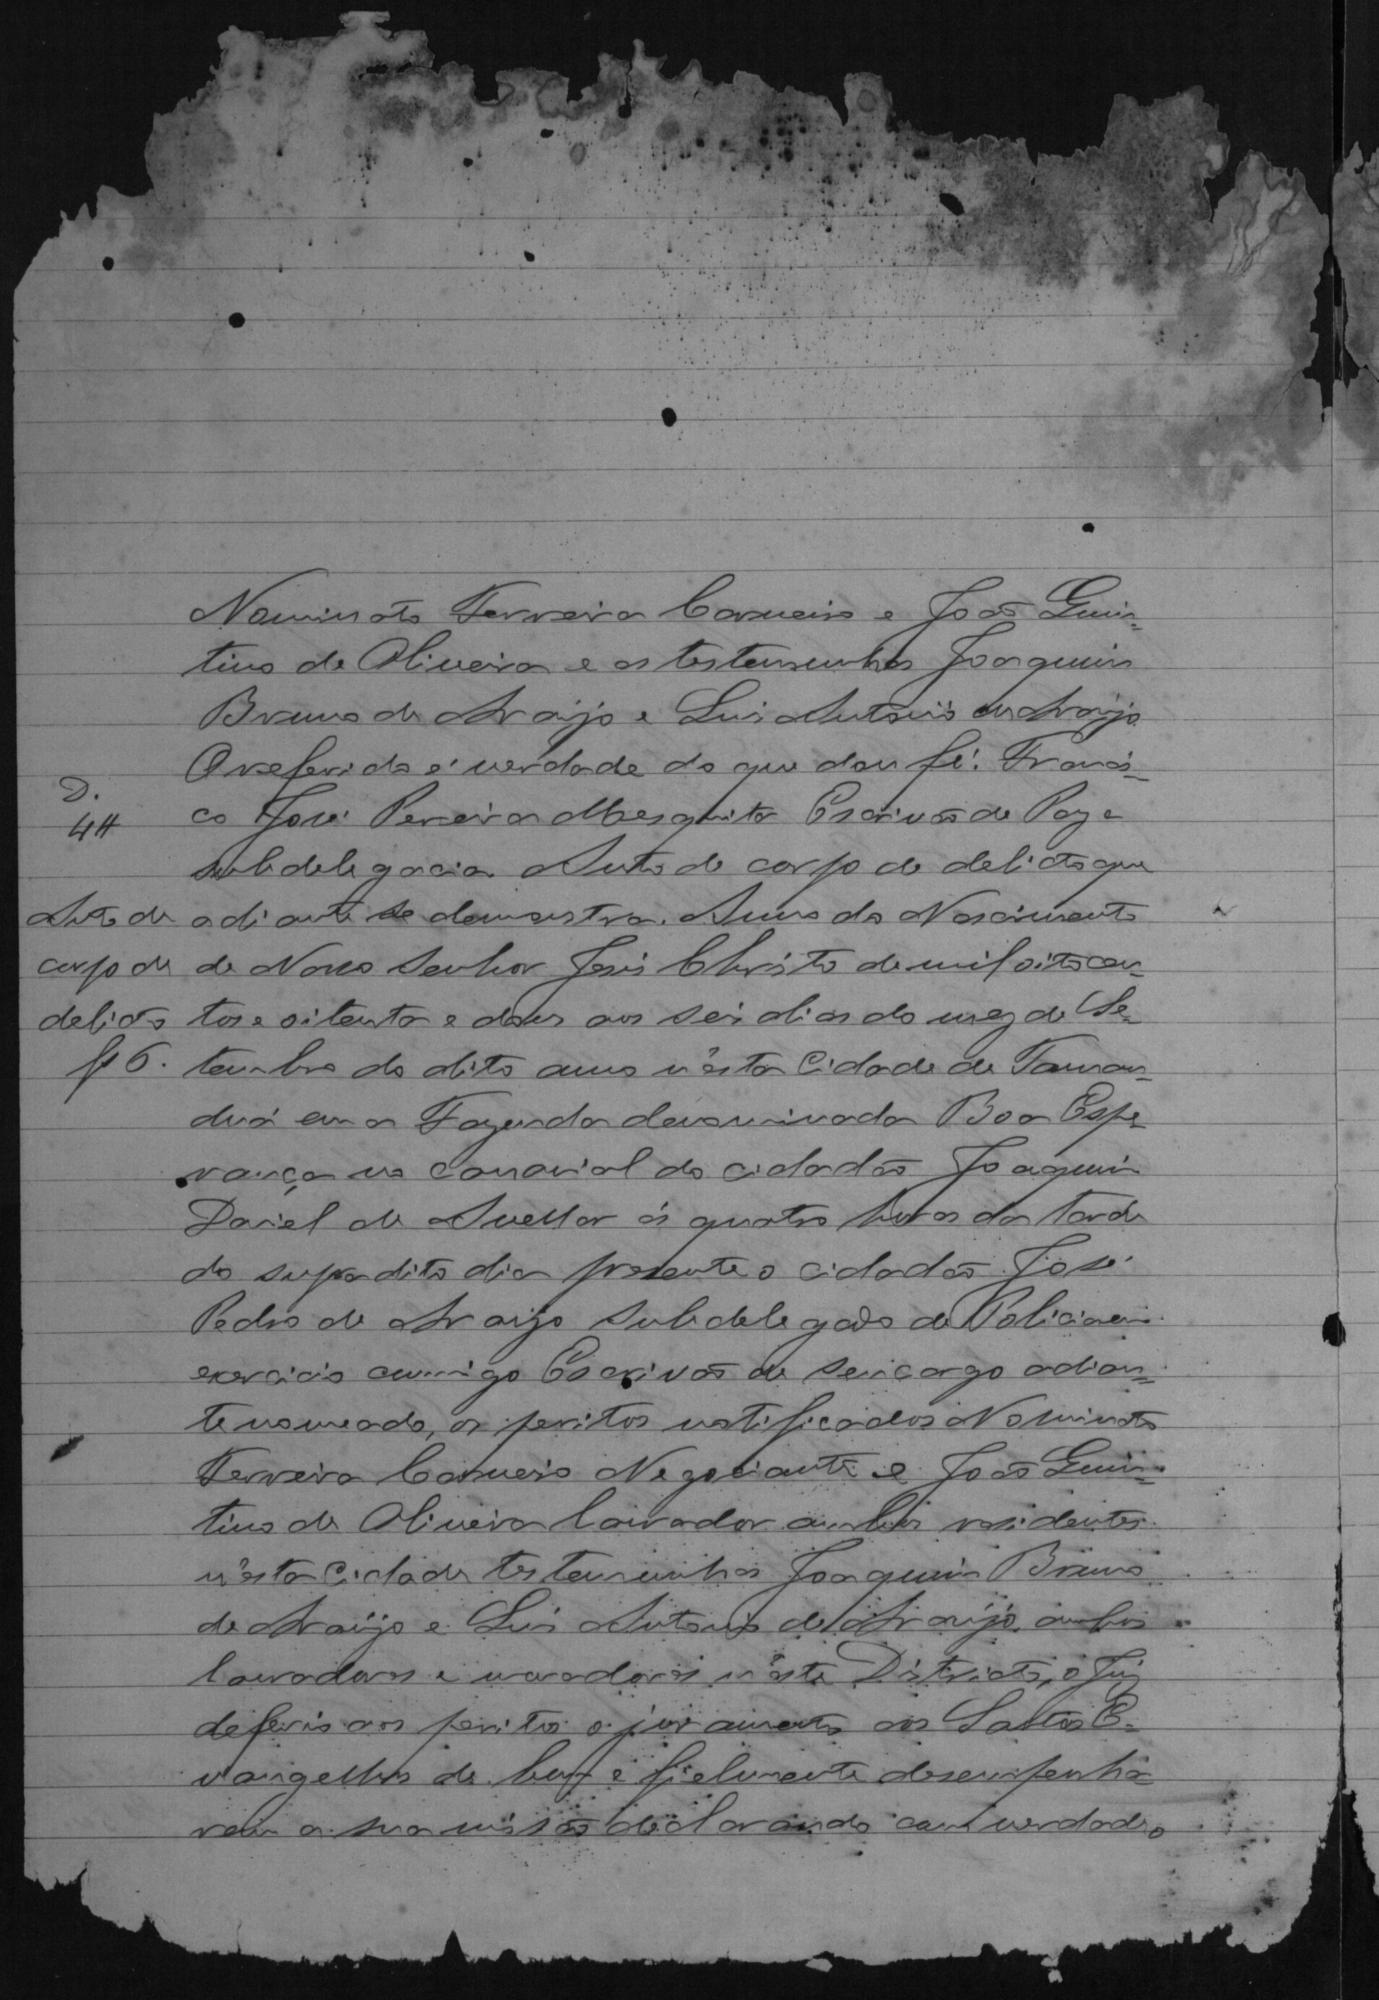 Nominato Ferreira Carneiro e João Quin=
tino de Oliveira e as testemunhas Joaquim
Bruno de Araújo e Luis Antonio de Araujo
O referido é verdade do que dou fé. Francis=
D.
4#
co José Pereira Mesquita Escrivão de Paz e
subdelegacia Auto de corpo de delicto que
Auto de
corpo de
delicto
fl 6.
adiante se demonstra. Anno do Nascimento
de Nosso Senhor Jesus Christo de mil oitocen=
tos e oitenta e dous aos seis dias do mez de Se=
tembro do dito anno n'esta Cidade de Taman=
duá em a Fazenda denominada Boa Espe=
rança no canavial do cidadão Joaquim
Daniel de Avellar ás quatro horas da tarde
do supradito dia presente o cidadão José
Pedro de Araujo Subdelegado de Policia em
exercicio commigo Escrivão de seu cargo adian=
te nomeado, os peritos notificados Nominato
Ferreira Carneiro Negociante e João Quin=
tino de Oliveira lavrador ambos residentes
n'esta Cidade testemunhas Joaquim Bruno
de Araújo e Luis Antonio de Araujo, ambos
lavradores e moradores n'este Districto, o Juiz
deferio aos peritos o juramento aos Santos E=
vangelhos de bem e fielmente desempenha=
rem a sua missão declarando com verdade o